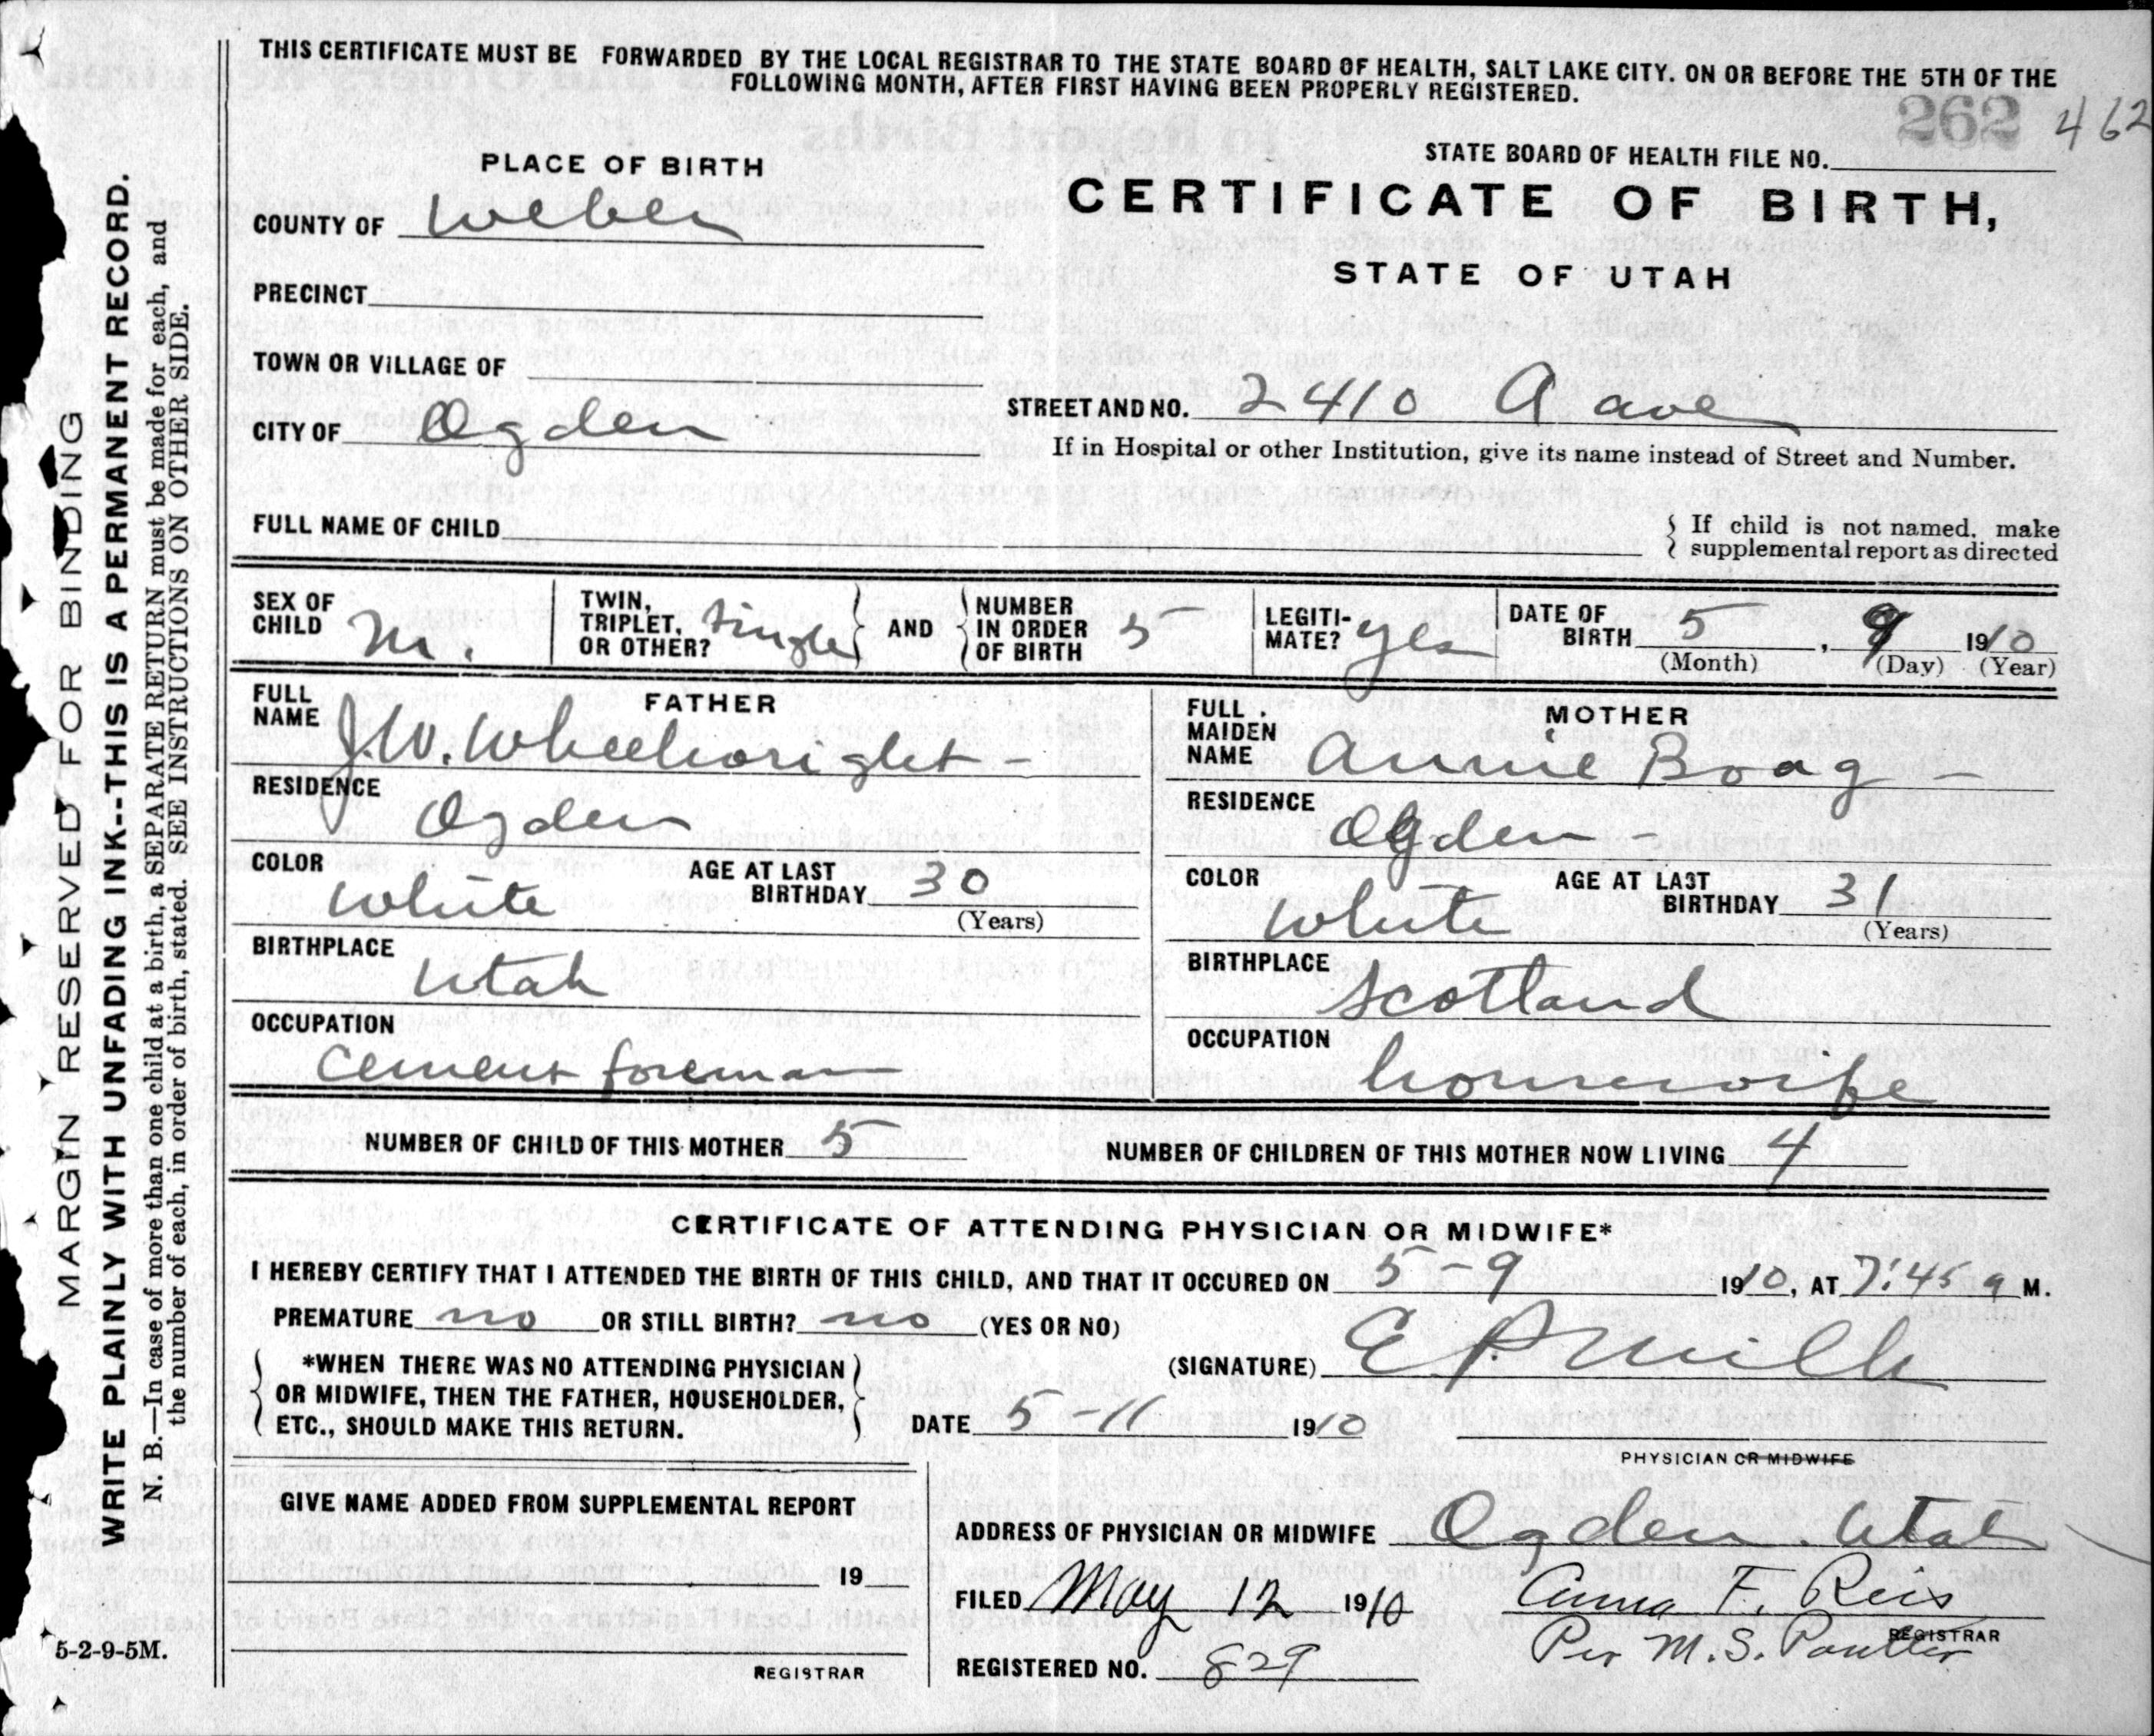 THIS CERTIFICATE MUST BE FORWARDED BY THE LOCAL REGISTRAR TO THE STATE BOARD OF HEALTH, SALT LAKE CITY. ON OR BEFORE THE 5TH OF THE
FOLLOWING MONTH, AFTER FIRST HAVING BEEN PROPERLY REGISTERED.
262 462
STATE BOARD OF HEALTH FILE NO.
PLACE OF BIRTH
CERTIFICATE OF BIRTH,
COUNTY OF Weber
STATE OF UTAH
PRECINCT
TOWN OR VILLAGE OF
STREET AND NO. 2410 A ave
CITY OF Ogden
If in Hospital or other Institution, give its name instead of Street and Number.
FULL NAME OF CHILD
{ If child is not named, make
supplemental report as directed
SEX OF CHILD M.
TWIN, TRIPLET, OR OTHER? Single
AND
NUMBER IN ORDER OF BIRTH 5
LEGITI-MATE? yes
DATE OF BIRTH 5, 9 1910
(Month) (Day) (Year)
FATHER
FULL NAME J.W. Wheelwright -
RESIDENCE Ogden
COLOR White
AGE AT LAST BIRTHDAY 30
(Years)
BIRTHPLACE Utah
OCCUPATION Cement foreman
MOTHER
FULL MAIDEN NAME Annie Boag -
RESIDENCE Ogden -
COLOR White
AGE AT LAST BIRTHDAY 31
(Years)
BIRTHPLACE Scotland
OCCUPATION housewife
NUMBER OF CHILD OF THIS MOTHER 5 NUMBER OF CHILDREN OF THIS MOTHER NOW LIVING 4
CERTIFICATE OF ATTENDING PHYSICIAN OR MIDWIFE*
I HEREBY CERTIFY THAT I ATTENDED THE BIRTH OF THIS CHILD, AND THAT IT OCCURED ON 5-9 1910, AT 7:45 a M.
PREMATURE no OR STILL BIRTH? no (YES OR NO)
*WHEN THERE WAS NO ATTENDING PHYSICIAN
OR MIDWIFE, THEN THE FATHER, HOUSEHOLDER,
ETC., SHOULD MAKE THIS RETURN.
(SIGNATURE) E P. Mills
DATE 5-11 1910
PHYSICIAN OR MIDWIFE
GIVE NAME ADDED FROM SUPPLEMENTAL REPORT
19
REGISTRAR
ADDRESS OF PHYSICIAN OR MIDWIFE Ogden. Utah
FILED May 12 1910 Anna F. Reis
REGISTRAR
Per M.S. Poulter
REGISTERED NO. 829
MARGIN RESERVED FOR BINDING
WRITE PLAINLY WITH UNFADING INK--THIS IS A PERMANENT RECORD.
N. B.—In case of more than one child at a birth, a SEPARATE RETURN must be made for each, and
the number of each, in order of birth, stated. SEE INSTRUCTIONS ON OTHER SIDE.
5-2-9-5M.